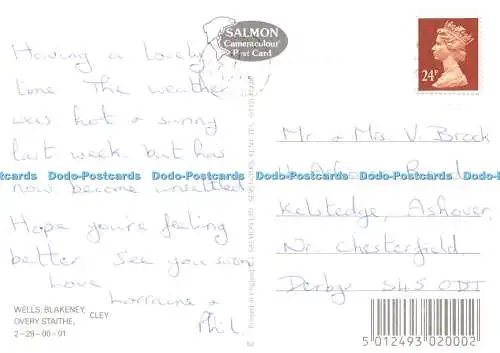 SALMON
Cameracolour
Post Card
Having a lovely
time The weather
was hot & sunny
last week but has
now become unsettled
Hope you're feeling
better See you soon
Love
Lorraine &
Phil.
WELLS, BLAKENEY, CLEY
OVERY STAITHE,
2-29-06-01
Printed in England © J. SALMON LTD., SEVENOAKS, KENT. TEL.
24P
Mr & Mrs V. Brock
Road
Kelstedge, Ashover
Nr. Chesterfield.
Derby S45 0DT
5 012493 020002
Dodo-Postcards Dodo-Postcards Dodo-Postcards Dodo-Postcards Dodo-Postcards